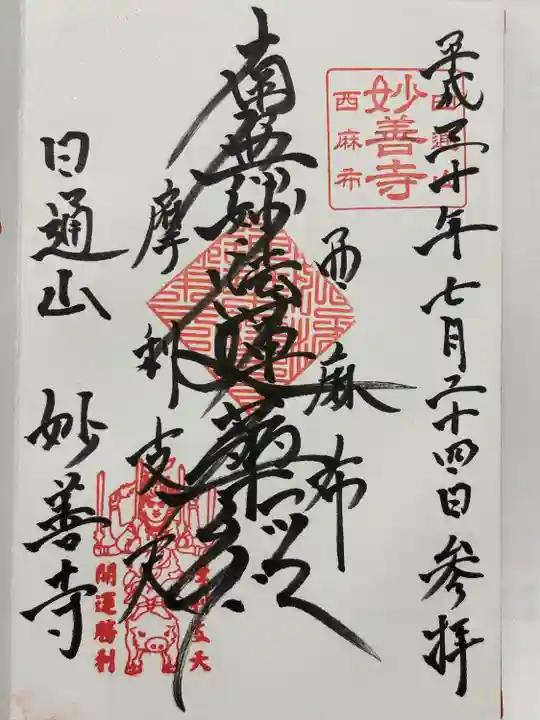 平成三十年七月二十四日参拝
日通山
妙善寺
西麻布
西麻布
南無妙法蓮華経
摩利支天
開運勝利
日通山 妙善寺